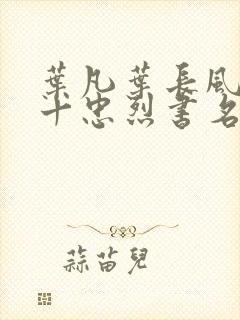 葉凡葉長風
十忠烈書名
蒜苗兒